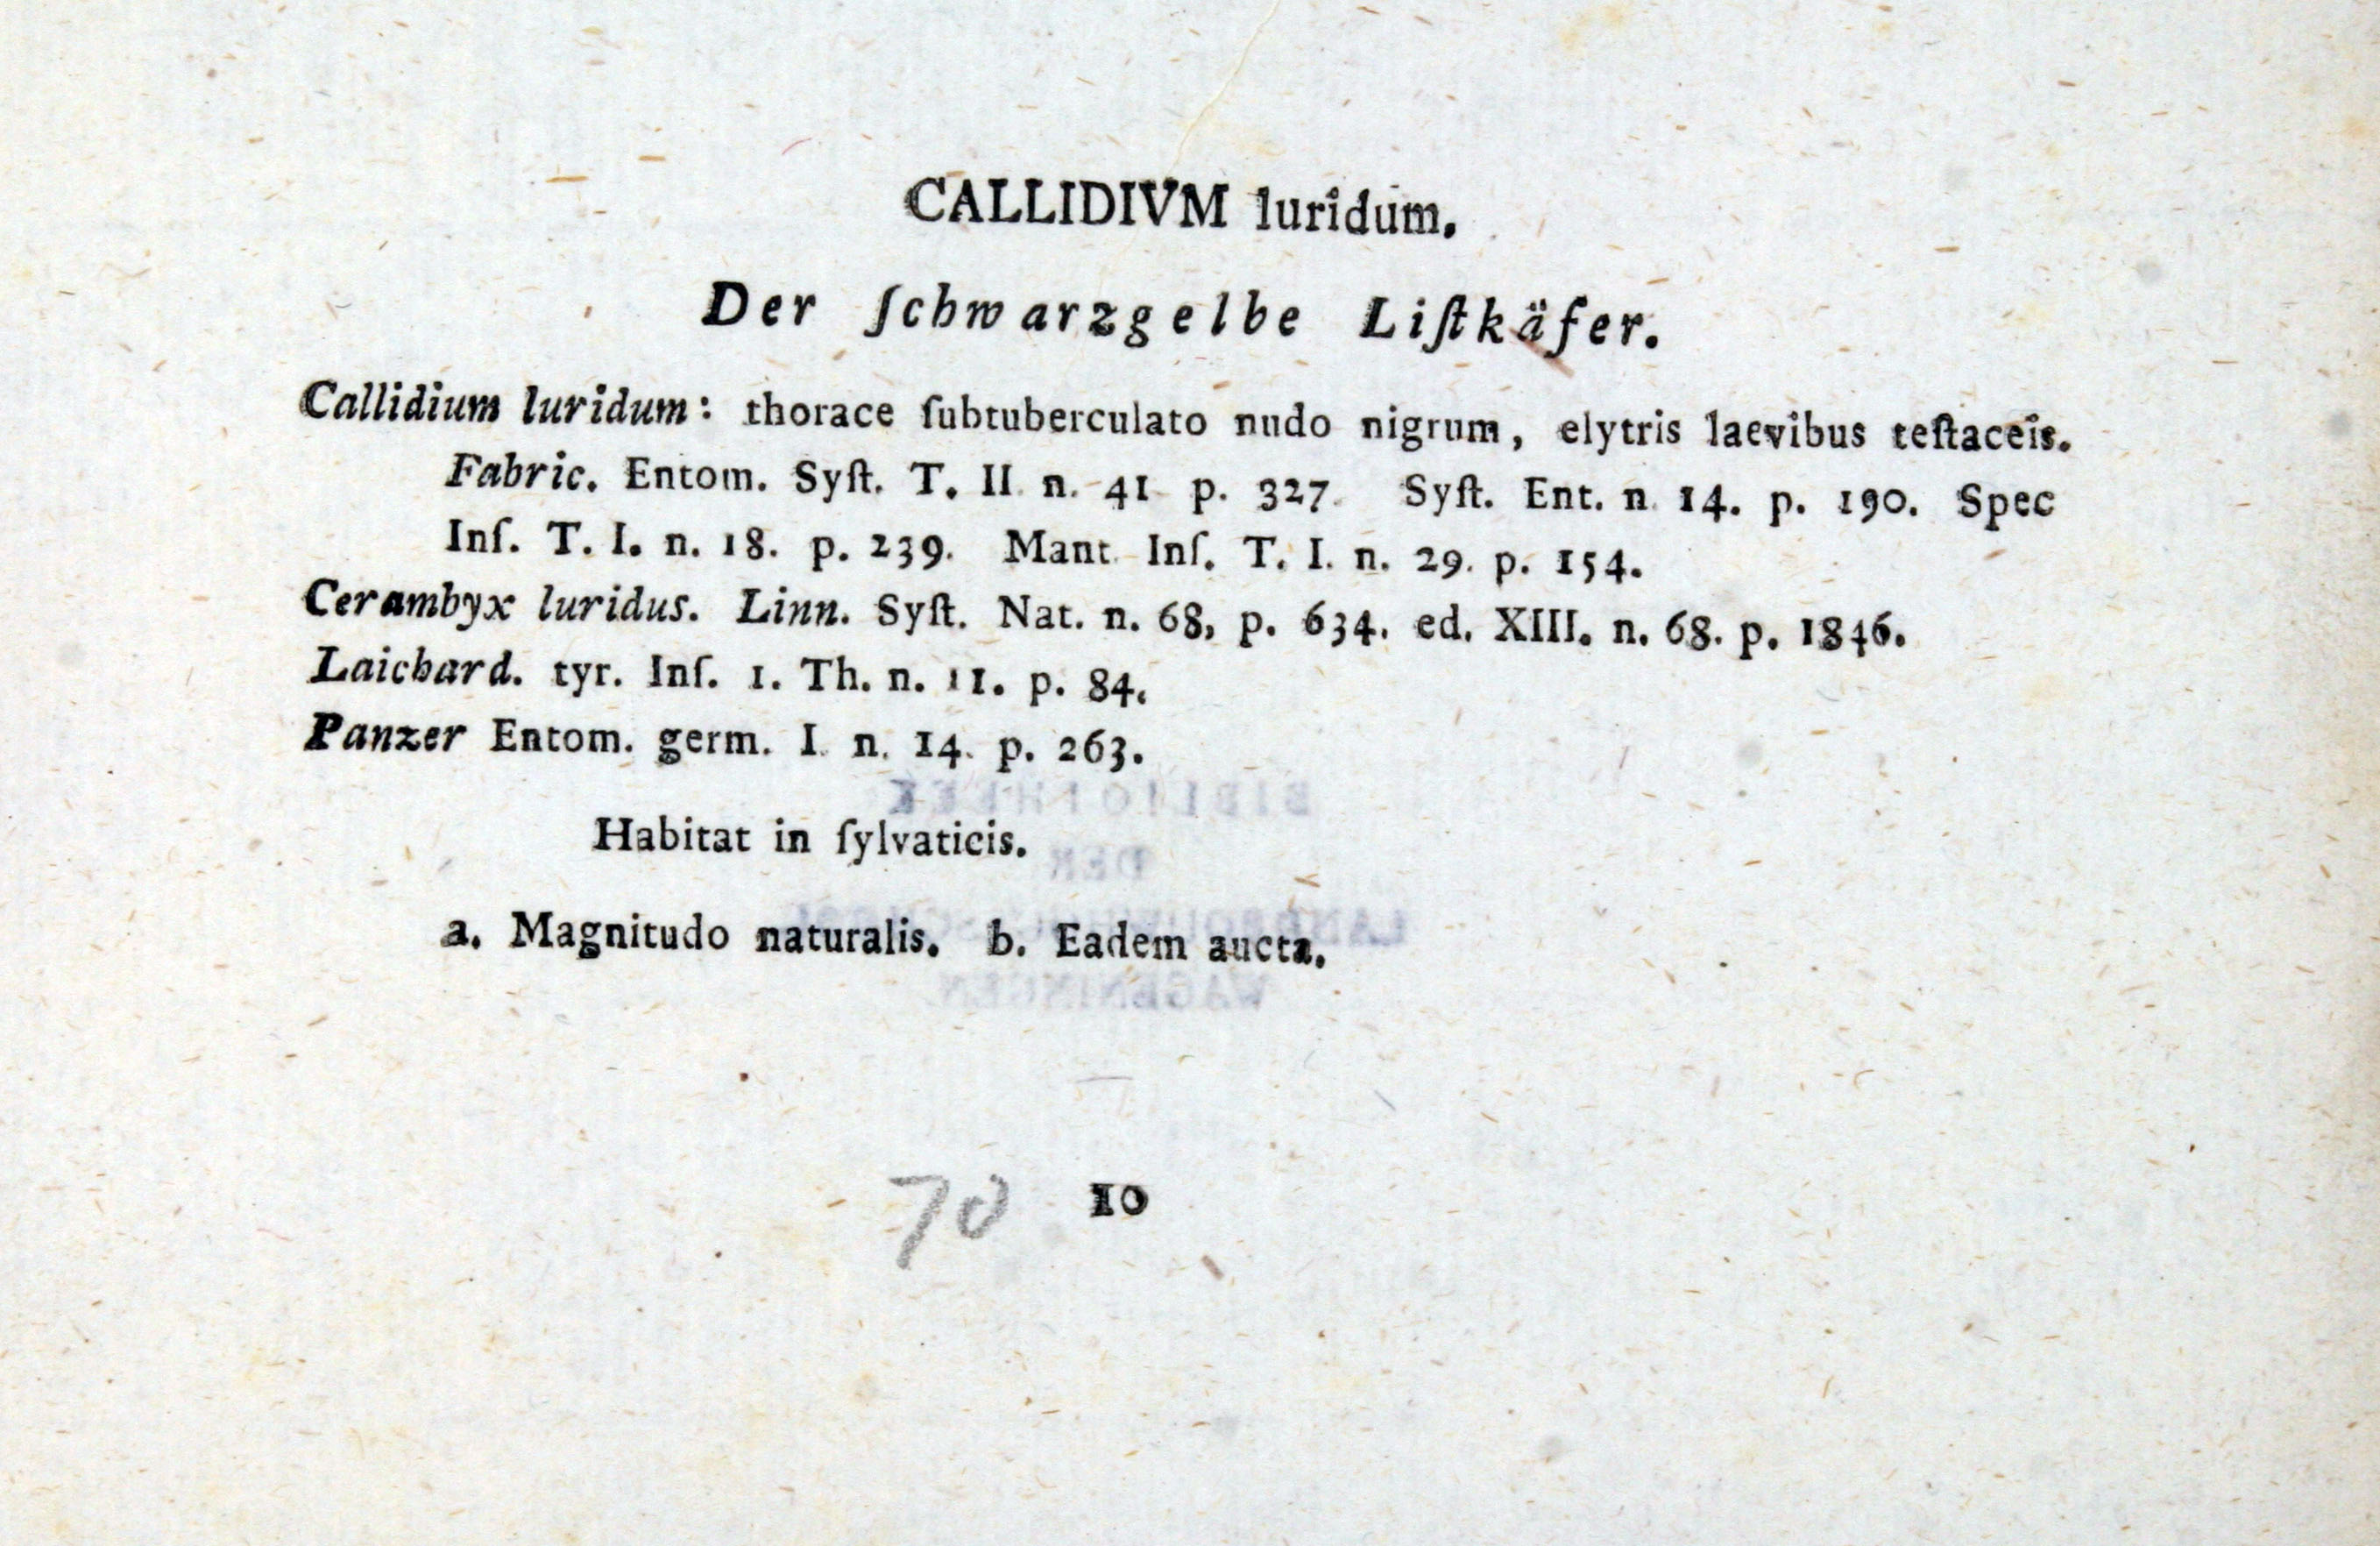 CALLIDIVM luridum.
Der ſchwarzgelbe Liſtkäfer.
Callidium luridum: thorace ſubtuberculato nudo nigrum, elytris laevibus teſtaceis.
Fabric. Entom. Syſt. T. II. n. 41 p. 327. Syſt. Ent. n. 14. p. 190. Spec
Inſ. T. I. n. 18. p. 239. Mant. Inſ. T. I. n. 29. p. 154.
Cerambyx luridus. Linn. Syſt. Nat. n. 68, p. 634. ed. XIII. n. 68. p. 1846.
Laichard. tyr. Inſ. 1. Th. n. 11. p. 84.
Panzer Entom. germ. I. n. 14. p. 263.
BIBLIOTHEEK
Habitat in ſylvaticis.
DER
a. Magnitudo naturalis. b. Eadem aucta.
WAGENINGEN
70 10